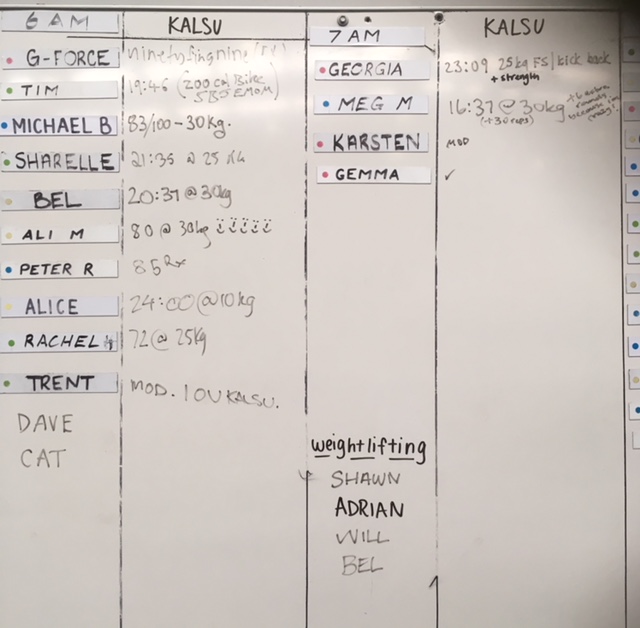 6 AM KALSU
G-FORCE ninetyfingnine (rx)
TIM 19:46 (200 cal Bike
5 BS EMOM)
MICHAEL B 83/100 - 30kg.
SHARELLE 21:35 @ 25 KG
BEL 20:37 @ 30kg
ALI M 80 @ 30kg
PETER R 85 Rx
ALICE 24:00 @ 10kg
RACHEL 72 @ 25kg
TRENT MOD. IOU KALSU.
DAVE
CAT
7 AM KALSU
GEORGIA 23:09 25kg FS | kick back
+ strength
MEG M 16:37 @ 30kg
(+30 reps)
KARSTEN MOD
GEMMA ✓
weightlifting
SHAWN
ADRIAN
WILL
BEL